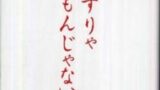 すりゃ
もんじゃない